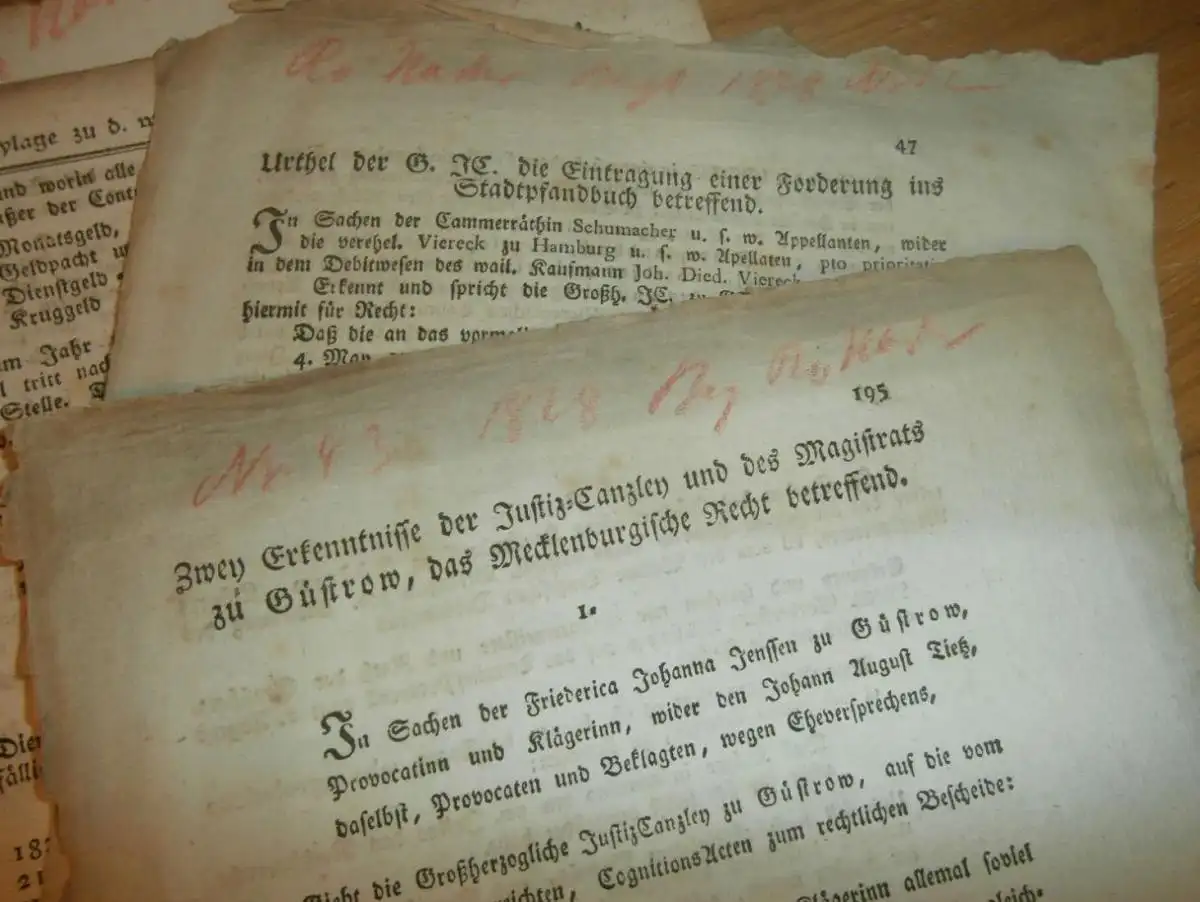 ylage zu d.
nd worin alle
ßer der Cont
Monatsgeld,
Geldpacht
Dienstgeld
Kruggeld
m Jahr
l tritt nac
Stelle.
1828
47
Urthel der G. JC. die Eintragung einer Forderung ins
Stadtpfandbuch betreffend.
In Sachen der Cammerräthin Schumacher u. s. w. Appellanten, wider
die verehel. Viereck zu Hamburg u. s. w. Apellaten, pto prioritati
in dem Debitwesen des weil. Kaufmann Joh. Died. Viereck
Erkennt und spricht die Großh. JC. zu
hiermit für Recht:
Daß die an das vorm
4. May
Nr. 43 1828
195
Zwey Erkenntnisse der Justiz-Canzley und des Magistrats
zu Güstrow, das Mecklenburgische Recht betreffend.
1.
In Sachen der Friederica Johanna Jenssen zu Güstrow,
Provocatinn und Klägerinn, wider den Johann August Tietz,
daselbst, Provocaten und Beklagten, wegen Eheversprechens,
Giebt die Großherzogliche JustizCanzley zu Güstrow, auf die vom
richten, CognitionsActen zum rechtlichen Bescheide:
Klägerinn allemal soviel
gleich-
Dien
fälli
182
21